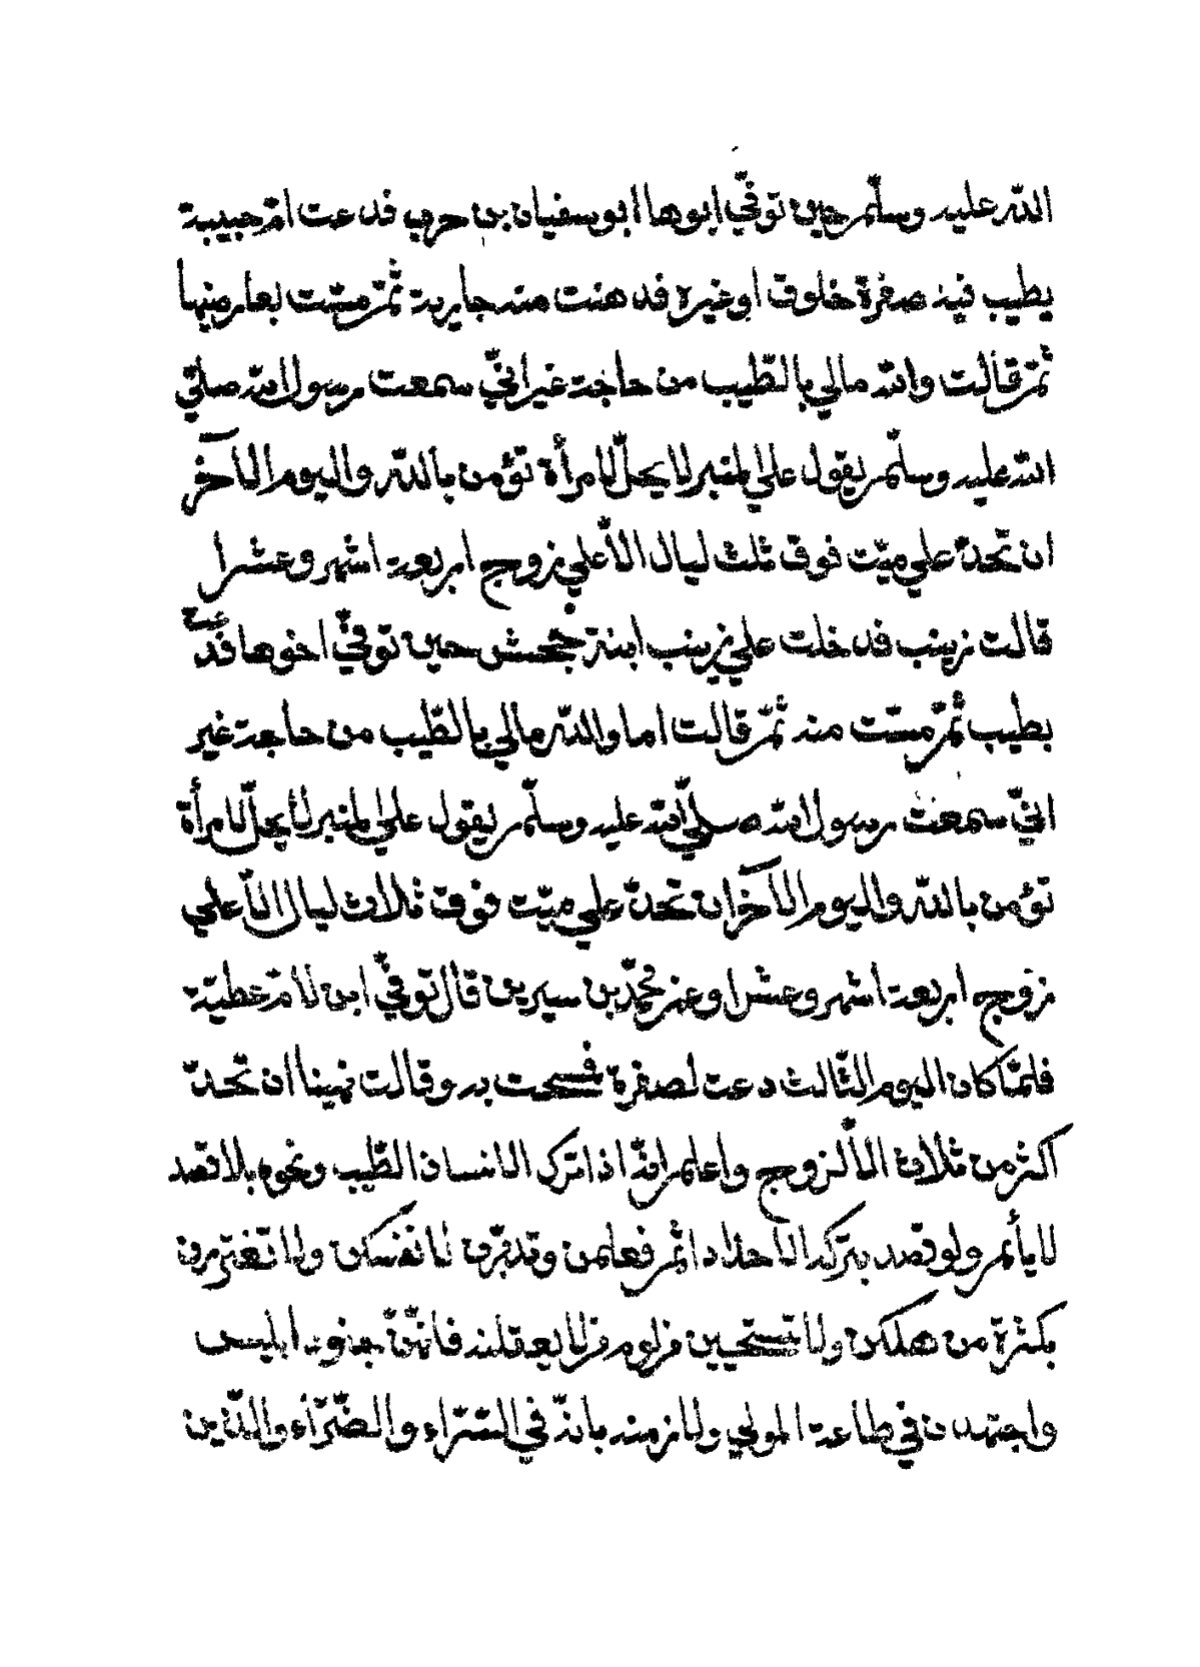 الله عليه وسلّم حين توفّي ابوها ابو سفيان بن حرب فدعت امّ حبيبة
بطيب فيه صفرة خلوق او غيره فدهنت منه جارية ثمّ مسّت بعارضيها
ثمّ قالت والله مالي بالطّيب من حاجة غير انّي سمعت رسول الله صلّي
الله عليه وسلّم يقول علي المنبر لا يحلّ لامرأة تؤمن بالله واليوم الآخر
ان تحدّ علي ميّت فوق ثلث ليال الاّ علي زوج اربعة اشهر وعشرا
قالت زينب فدخلت علي زينب ابنة جحش حين توفّي اخوها فدعت
بطيب ثمّ مسّت منه ثمّ قالت اما والله مالي بالطّيب من حاجة غير
انّي سمعت رسول الله صلّي الله عليه وسلّم يقول علي المنبر لا يحلّ لامرأة
تؤمن بالله واليوم الآخر ان تحدّ علي ميّت فوق ثلاث ليال الاّ علي
زوج اربعة اشهر وعشرا وعن محمّد بن سيرين قال توفّي ابن لامّ عطيّة
فلمّا كان اليوم الثّالث دعت لصفرة فمسحت به وقالت نهينا ان تحدّ
اكثر من ثلاث الاّ لزوج واعلم انّه اذا ترك الانسان الطّيب ونحوه بلا قصد
لا يأثم ولو قصد بتركه الاحداد اثم فعلمن وتدبّرن لانفسكن ولا تغتررن
بكثرة من هلكن ولا تستحيين من لوم من لا يعقلنه فانّهنّ جنود ابليس
واجتهدن في طاعة المولي ولازمنه بانّه في السّرّاء والضّرّاء والّذين